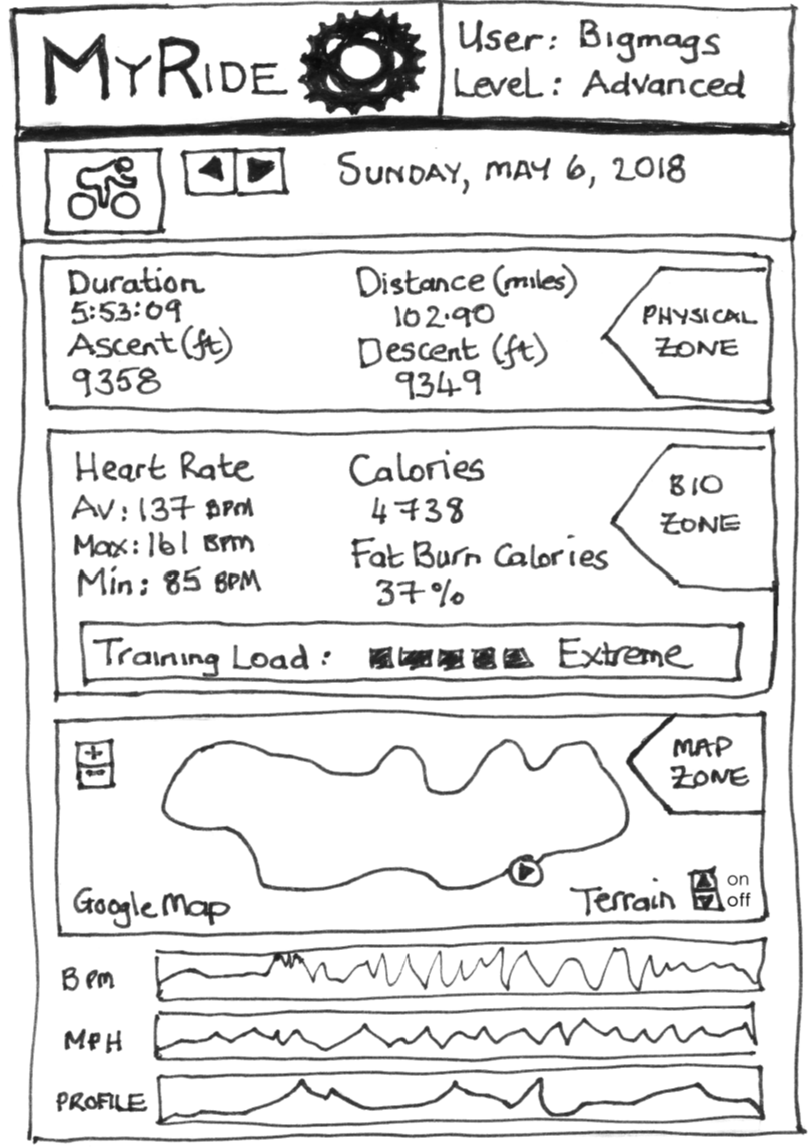 MYRIDE
User: Bigmags
Level: Advanced
SUNDAY, MAY 6, 2018
Duration
5:53:09
Ascent (ft)
9358
Distance (miles)
102.90
Descent (ft)
9349
PHYSICAL
ZONE
Heart Rate
Av: 137 BPM
Max: 161 BPM
Min: 85 BPM
Calories
4738
Fat Burn Calories
37%
BIO
ZONE
Training Load: Extreme
MAP
ZONE
Google Map
Terrain
on
off
Bpm
MPH
PROFILE